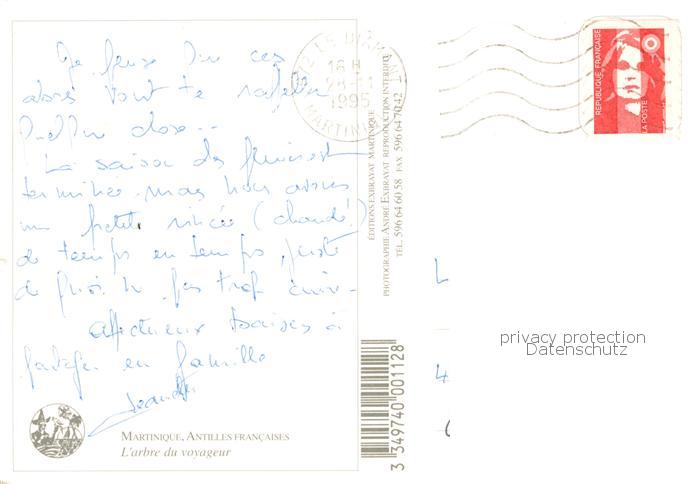 Je pense que ces
arbres vont te rappeler
quelque chose...
La saison des pluies est
terminée mais nous avons
une petite rincée (chaude!)
de temps en temps, juste
de quoi ne pas trop cuire.
Affectueux baisers à
partager en famille
MARTINIQUE, ANTILLES FRANÇAISES
L'arbre du voyageur
LE DIAMANT
16 H
1995
MARTINIQUE
ÉDITIONS EXBRAYAT MARTINIQUE
PHOTOGRAPHIE ANDRÉ EXBRAYAT REPRODUCTION INTERDITE
TÉL. 596 64 60 58 FAX 596 64 70 42
3 349740 001128
RÉPUBLIQUE FRANÇAISE
LA POSTE
L
4
privacy protection
Datenschutz